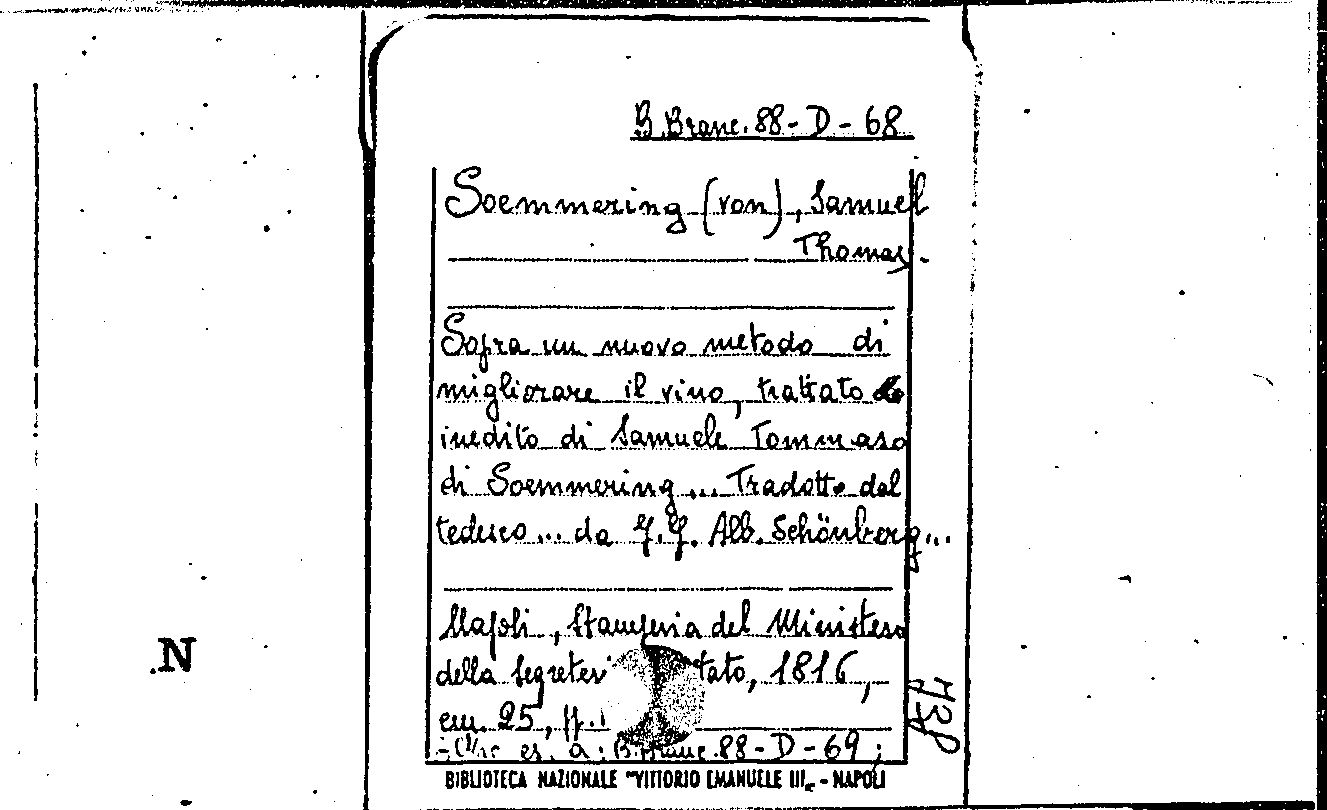 B. Branc. 88-D-68
Soemmering (von), Samuel
Thomas.
Sopra un nuovo metodo di
migliorare il vino, trattato
inedito di Samuele Tommaso
di Soemmering... Tradotto dal
tedesco... da G. G. Alb. Schönberg...
Napoli, Stamperia del Ministero
della Segreteri tato, 1816,
cm. 25, pp.
es. a: B. Branc. 88-D-69;
738
N
BIBLIOTECA NAZIONALE "VITTORIO EMANUELE III„ - NAPOLI